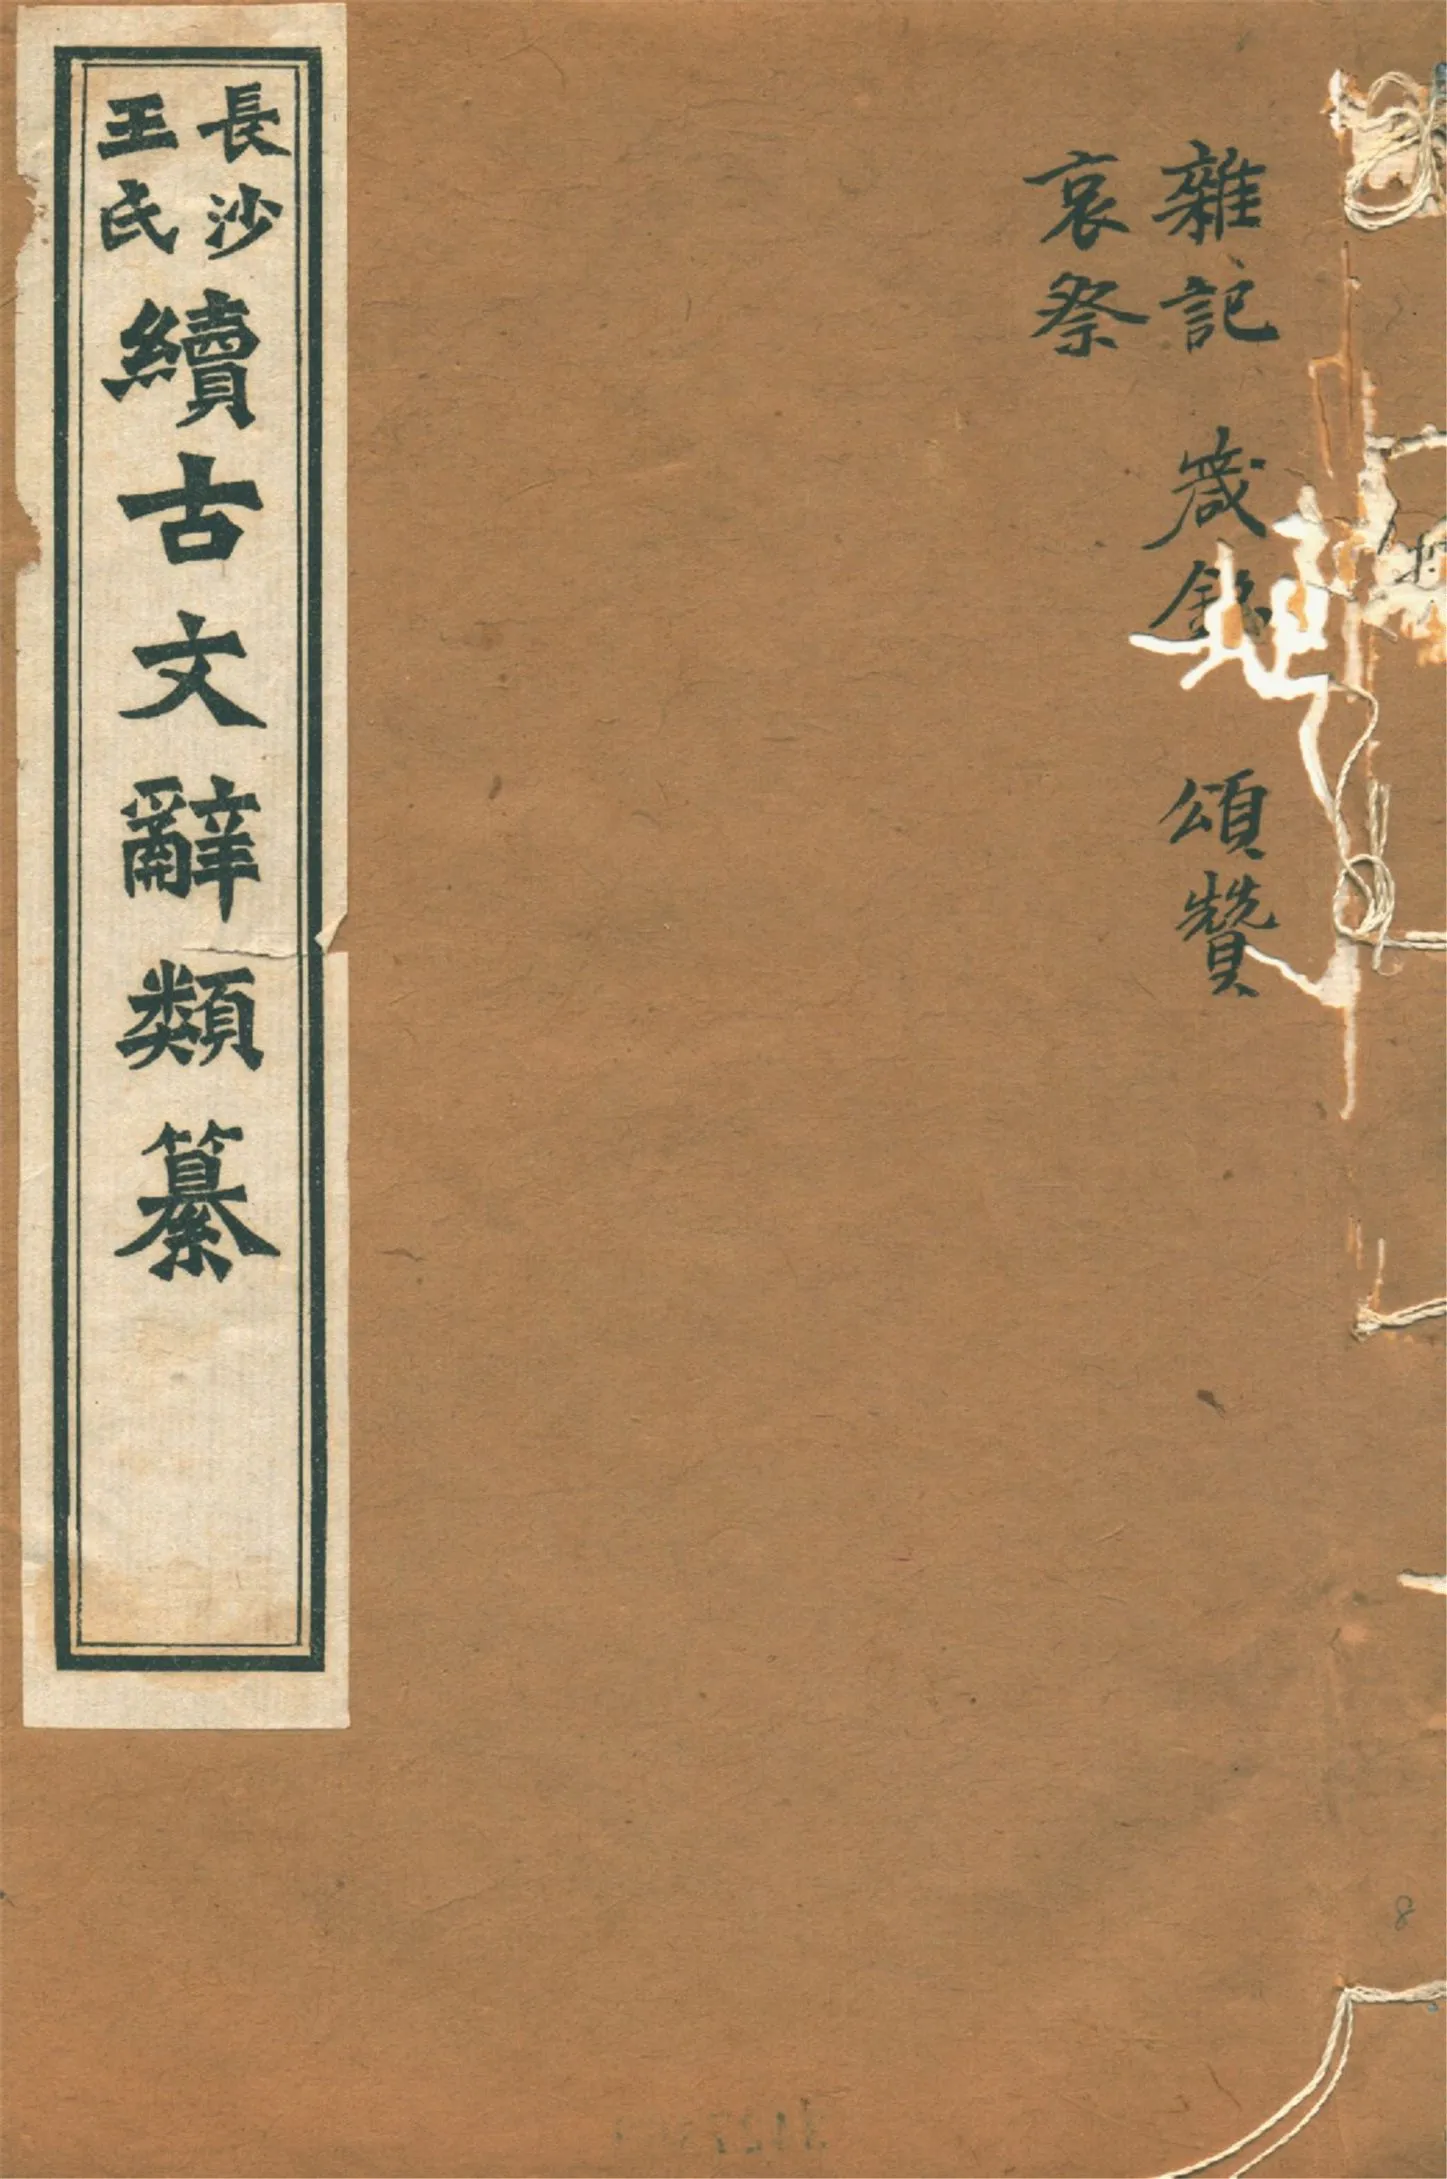 雜記 箴銘 頌贊
哀祭
長沙
王氏
續古文辭類纂
8